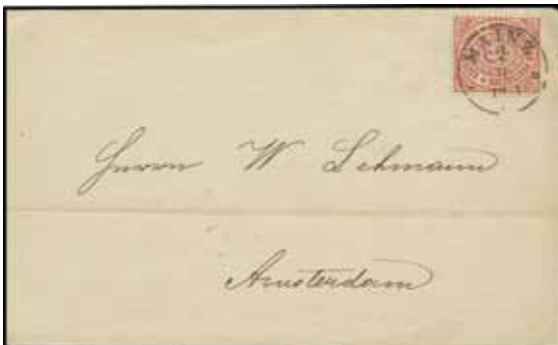 MAINZ
Herrn W Lehmann
Amsterdam